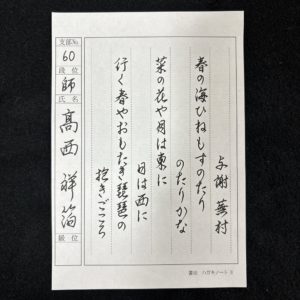 与謝蕪村
春の海ひねもすのたり
のたりかな
菜の花や月は東に
日は西に
行く春やおもたき琵琶の
抱きごころ
支部No.
60
段位
師
氏名
髙西祥箔
級位
書道 ハガキノート